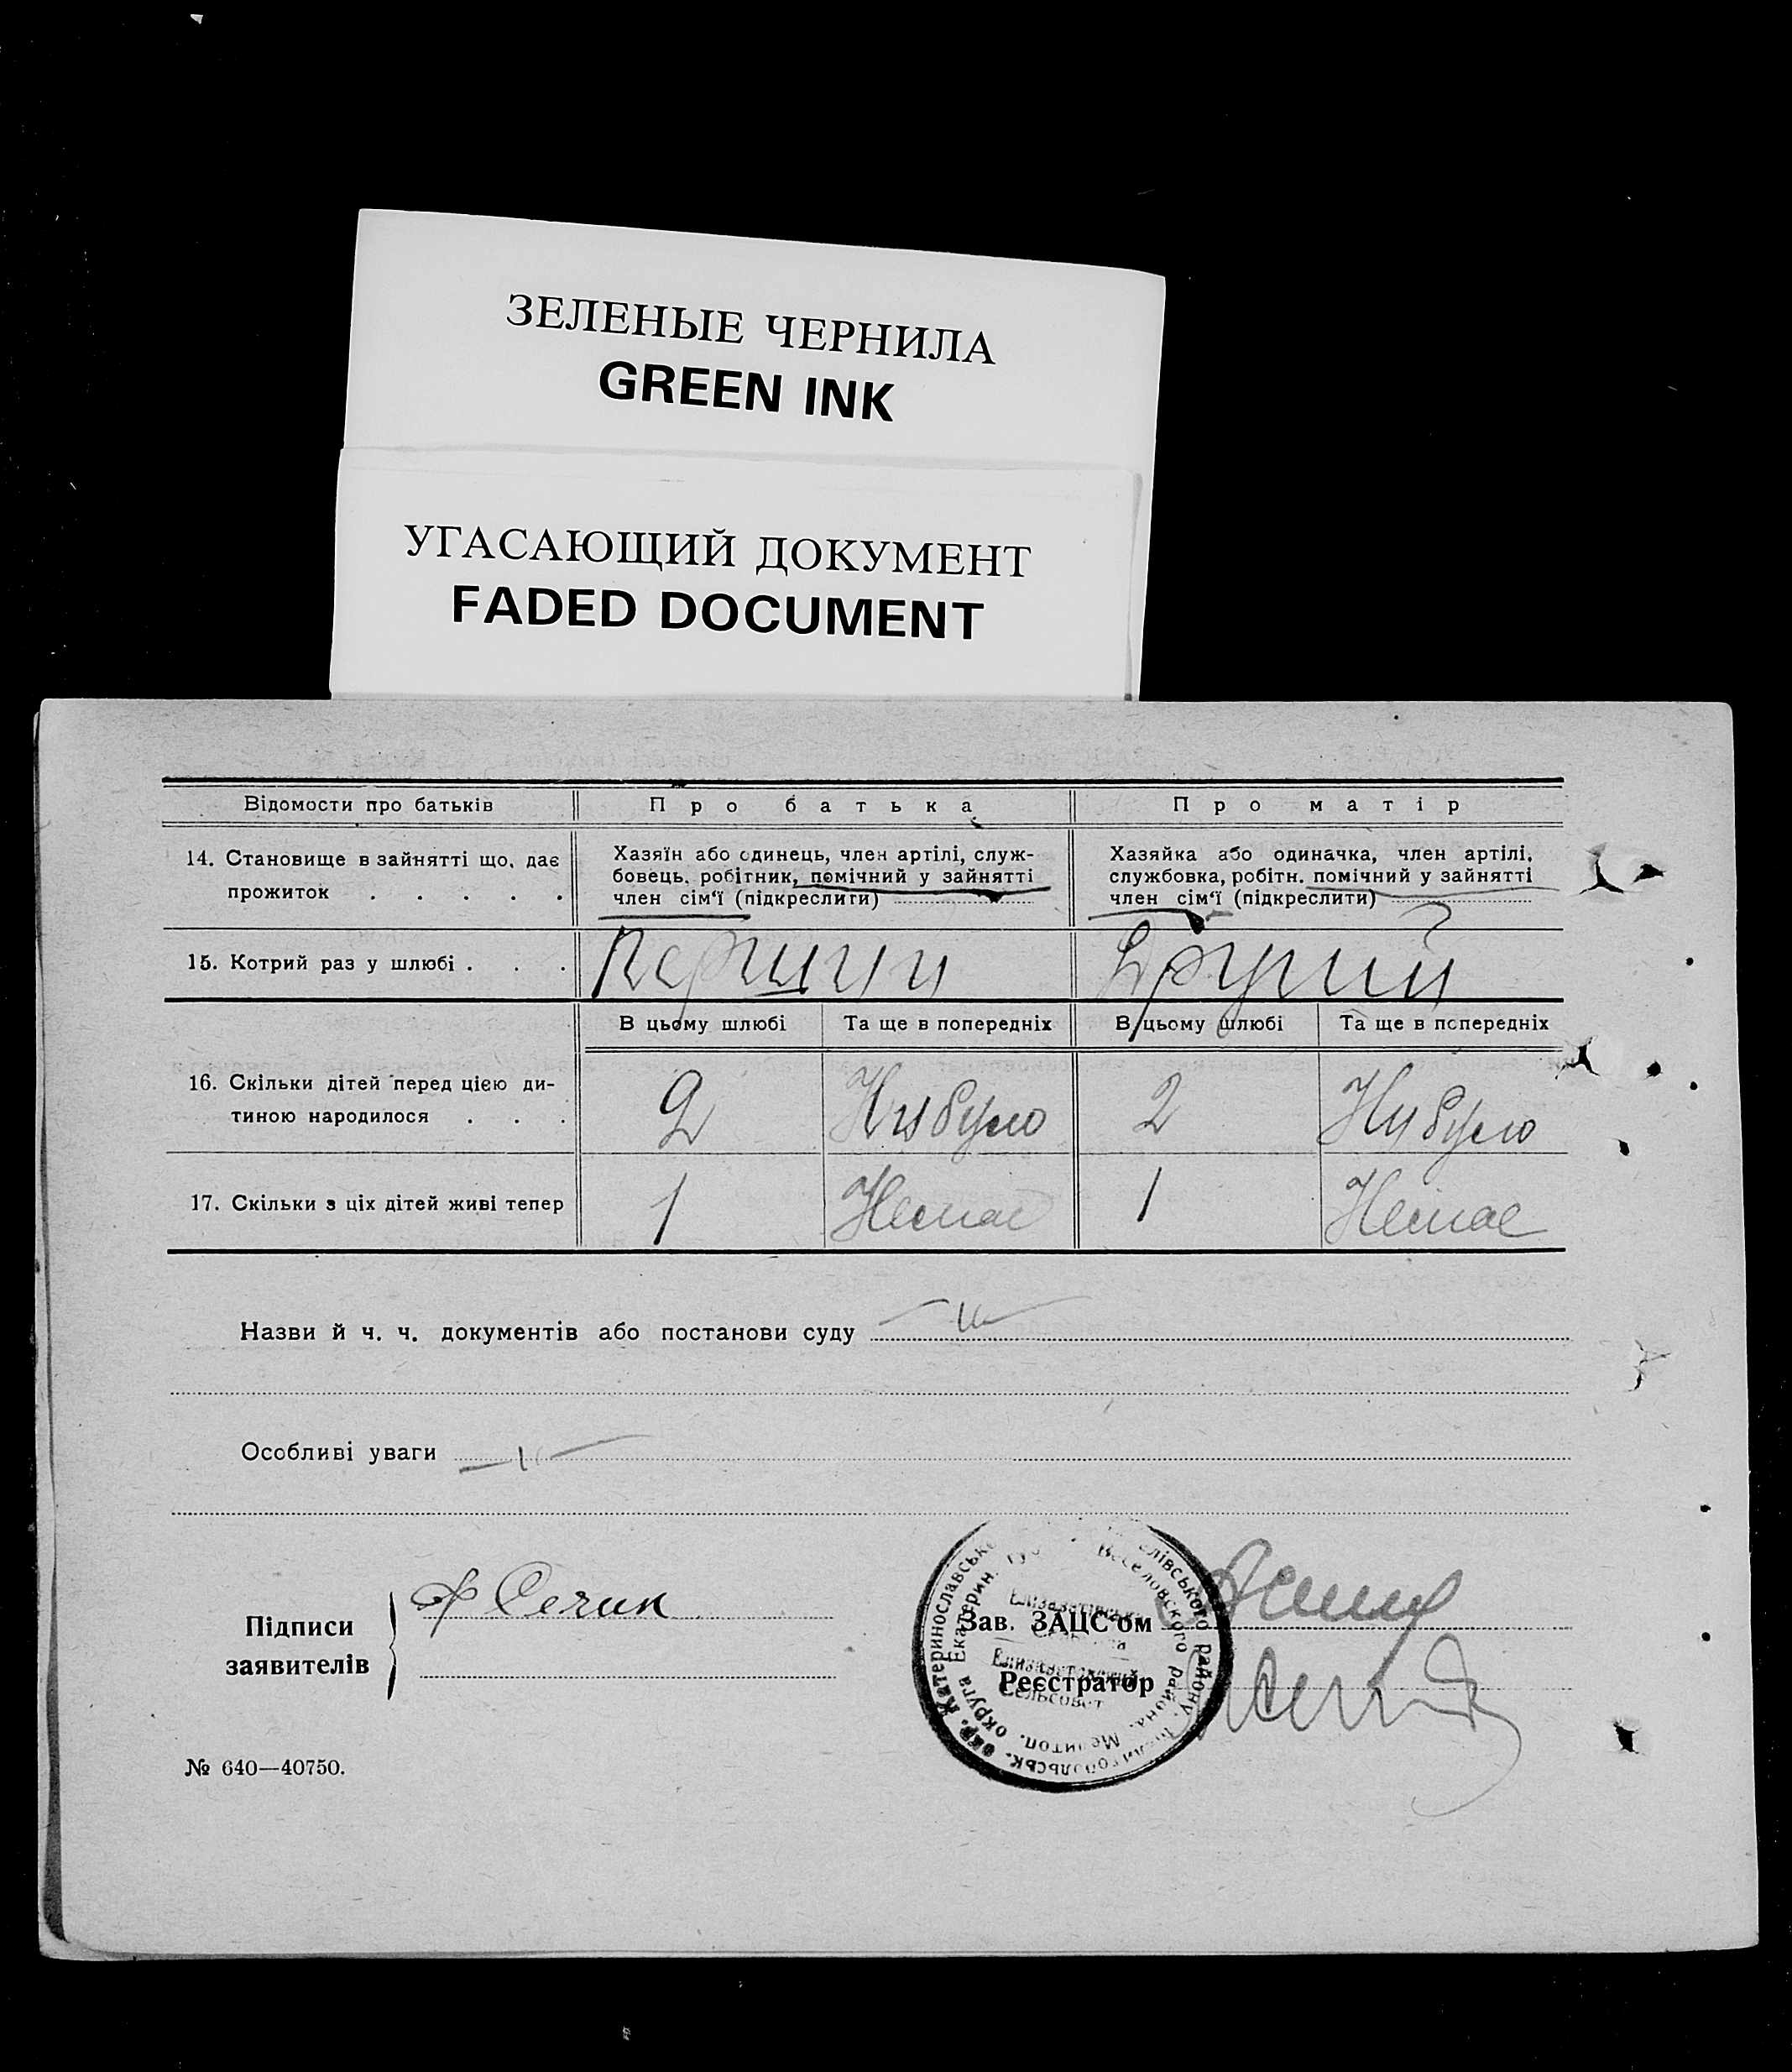 ЗЕЛЕНЫЕ ЧЕРНИЛА
GREEN INK
УГАСАЮЩИЙ ДОКУМЕНТ
FADED DOCUMENT
Відомости про батьків
Про батька
Про матір
14. Становище в зайнятті що, дає
прожиток . . . . .
Хазяїн або одинець, член артілі, служ-
бовець, робітник, помічний у зайнятті
член сім'ї (підкреслити)
Хазяйка або одиначка, член артілі,
службовка, робітн. помічний у зайнятті
член сім'ї (підкреслити)
15. Котрий раз у шлюбі . . .
Перший
Другий
В цьому шлюбі
Та ще в попередніх
В цьому шлюбі
Та ще в попередніх
16. Скільки дітей перед цією ди-
тиною народилося . . .
2
Ни було
2
Ни було
17. Скільки з ціх дітей живі тепер
1
Немає
1
Немає
Назви й ч. ч. документів або постанови суду
Особливі уваги
Підписи
заявителів
Зав. ЗАЦС'ом
Реєстратор
окр. Катеринославсько
лівського району,
округа Екатерин. Гу
Веселовского района, Мелитоп.
Сельсовет
№ 640—40750.